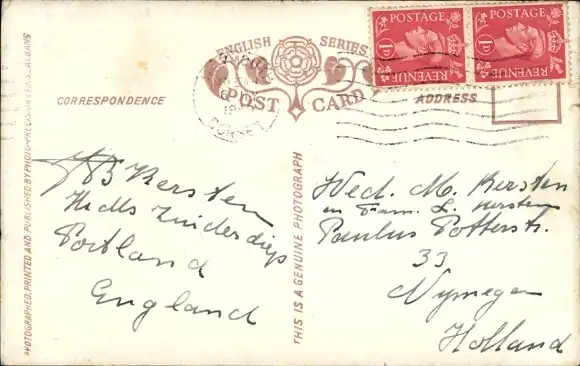 ENGLISH SERIES
POST CARD
CORRESPONDENCE
ADDRESS
POSTAGE
POSTAGE
1D
1D
REVENUE
REVENUE
DORSET
PHOTOGRAPHED, PRINTED AND PUBLISHED BY PHOTO-PRECISION LTD., ST. ALBANS
THIS IS A GENUINE PHOTOGRAPH
B Kersten
Zuiderdiep
Portland
England
Wed. M. Kersten
en Fam. L. Kersten
Paulus Potterstr.
33
Nymegen
Holland